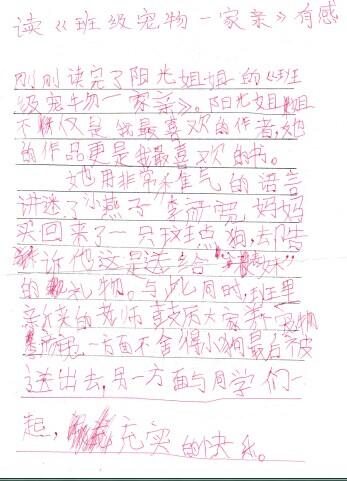 读《班级宠物一家亲》有感
刚刚读完了阳光姐姐的《班
级宠物一家亲》。阳光姐姐
不仅是我最喜欢的作者,她
的作品更是我最喜欢的书。
她用非常有生气的语言
讲述了小燕子 妈妈
买回来了一只斑点狗,却告
诉他这是送给"表妹"
的礼物。与此同时,班里
新来的老师鼓历大家养宠物
一方面不舍得小狗最后被
送出去,另一方面与同学们一
起, 充实的快乐。